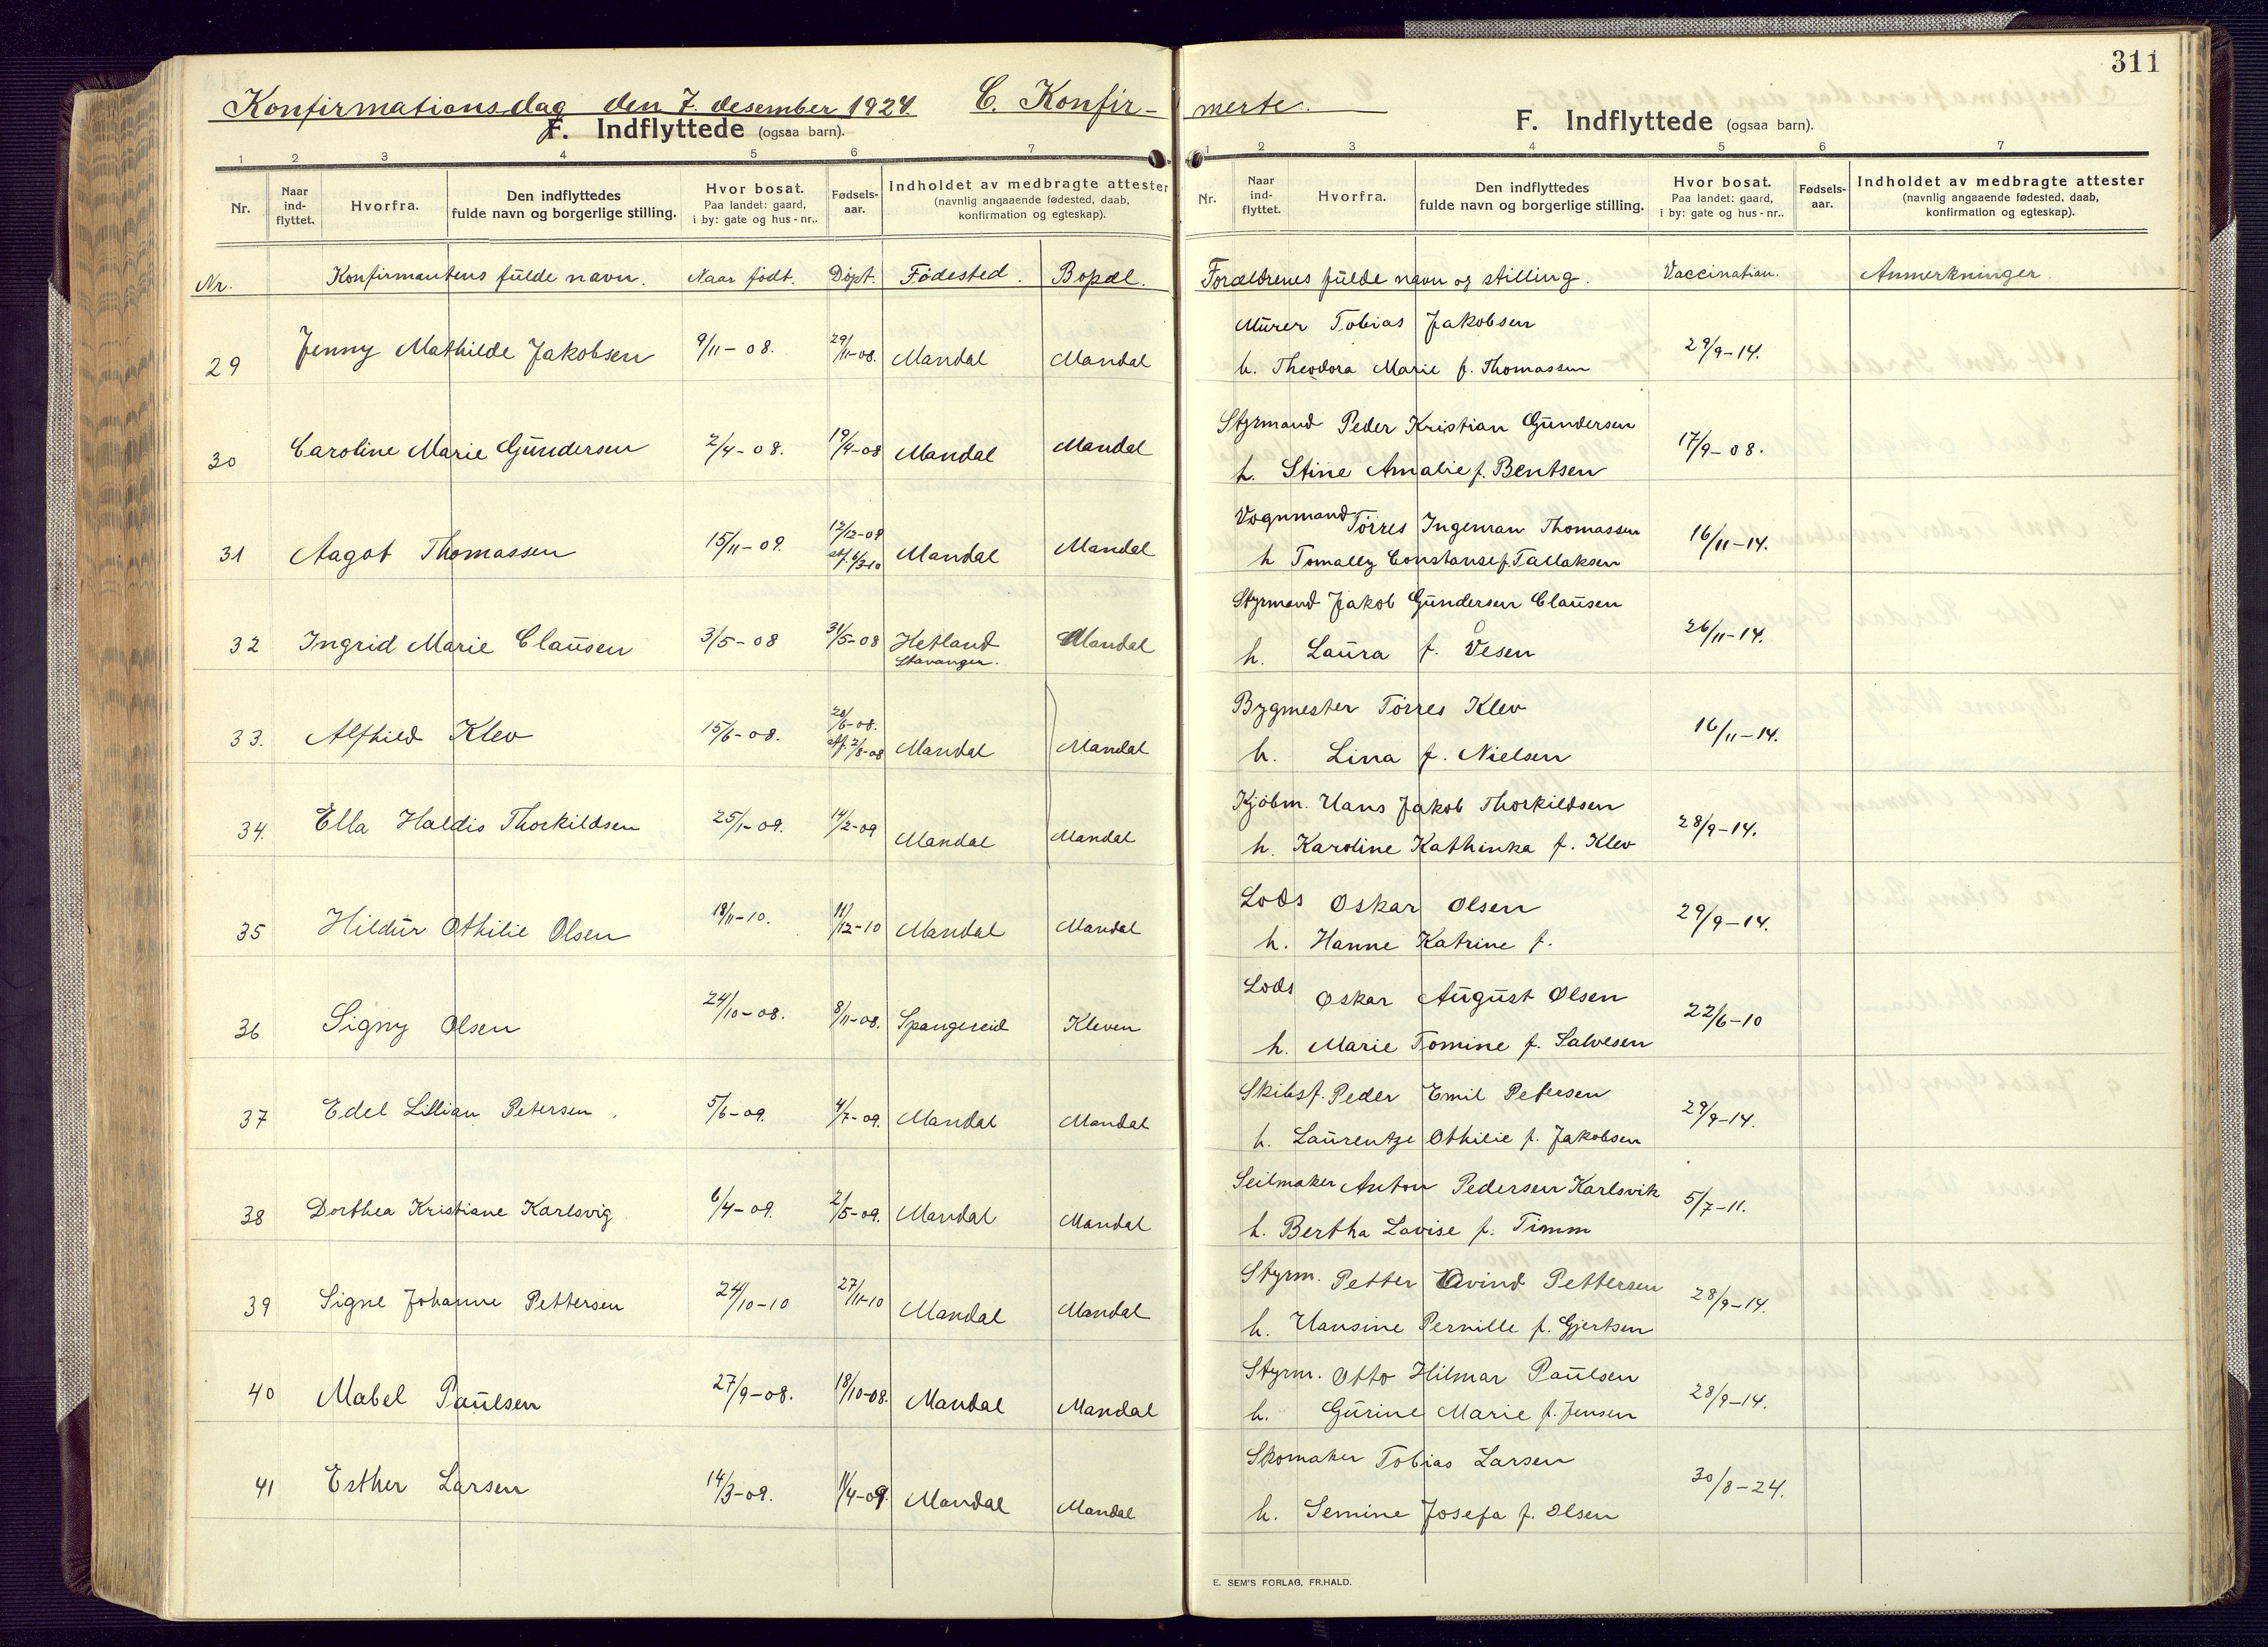 311
Konfirmationsdag den 7. desember 1924. C. Konfir- merte.
F. Indflyttede (ogsaa barn).
F. Indflyttede (ogsaa barn).
1 2 3 4 5 6 7
1 2 3 4 5 6 7
Nr. Naar ind-flyttet. Hvorfra. Den indflyttedes fulde navn og borgerlige stilling. Hvor bosat. Paa landet: gaard, i by: gate og hus-nr.. Fødsels-aar. Indholdet av medbragte attester (navnlig angaaende fødested, daab, konfirmation og egteskap).
Nr. Naar ind-flyttet. Hvorfra. Den indflyttedes fulde navn og borgerlige stilling. Hvor bosat. Paa landet: gaard, i by: gate og hus-nr.. Fødsels-aar. Indholdet av medbragte attester (navnlig angaaende fødested, daab, konfirmation og egteskap).
Nr. Konfirmantens fulde navn. Naar født. Døpt. Fødested. Bopæl. Forældrenes fulde navn og stilling. Vaccination. Anmerkninger.
29 Jenny Mathilde Jakobsen 9/11-08. 29/11-08. Mandal Mandal Murer Tobias Jakobsen
h. Theodora Marie f. Thomassen 29/9-14.
30 Caroline Marie Gundersen 2/4-08. 19/4-08 Mandal Mandal Styrmand Peder Kristian Gundersen
h. Stine Amalie f. Bentsen 17/9-08.
31 Aagot Thomassen 15/11-09. 12/12-09 stf. 6/3-10 Mandal Mandal Vognmand Tørres Ingeman Thomassen
h Tomally Constanse f. Tallaksen 16/11-14.
32 Ingrid Marie Clausen 3/5-08 31/5-08 Hetland Stavanger. Mandal Styrmand Jakob Gundersen Clausen
h. Laura f. Vesen 26/11-14.
33. Alfhild Klev 15/6-08. 20/6-08. stf. 2/8-08 Mandal Mandal Bygmester Tørres Klev
h. Lina f. Nielsen 16/11-14.
34. Ella Haldis Thorkildsen 25/1-09. 14/2-09 Mandal Mandal Kjøbm. Hans Jakob Thorkildsen
h. Karoline Kathinka f. Klev 28/9-14.
35 Hildur Othilie Olsen 18/11-10. 11/12-10 Mandal Mandal Lods Oskar Olsen
h. Hanne Katrine f. 29/9-14.
36 Signy Olsen 24/10-08. 8/11-08. Spangereid Kleven Lods Oskar August Olsen
h. Marie Tomine f. Salvesen 22/6-10
37 Edel Lillian Petersen. 5/6-09. 4/7-09. Mandal Mandal Skibsf. Peder Emil Petersen
h. Laurentze Othilie f. Jakobsen 29/9-14.
38 Dorthea Kristiane Karlsvig 6/4-09. 2/5-09. Mandal Mandal Seilmaker Anton Pedersen Karlsvik
h. Bertha Lovise f. Timm 5/7-11.
39 Signe Johanne Pettersen 24/10-10 27/11-10 Mandal Mandal Styrm. Petter Øvind Pettersen
h. Hansine Pernille f. Gjertsen 28/9-14.
40 Mabel Paulsen 27/9-08. 18/10-08. Mandal Mandal Styrm. Otto Hilmar Paulsen
h. Gurine Marie f. Jensen 28/9-14.
41 Esther Larsen 14/3-09. 11/4-09. Mandal Mandal Skomaker Tobias Larsen
h. Semine Josefa f. Olsen 30/8-24.
E. SEM'S FORLAG, FR.HALD.